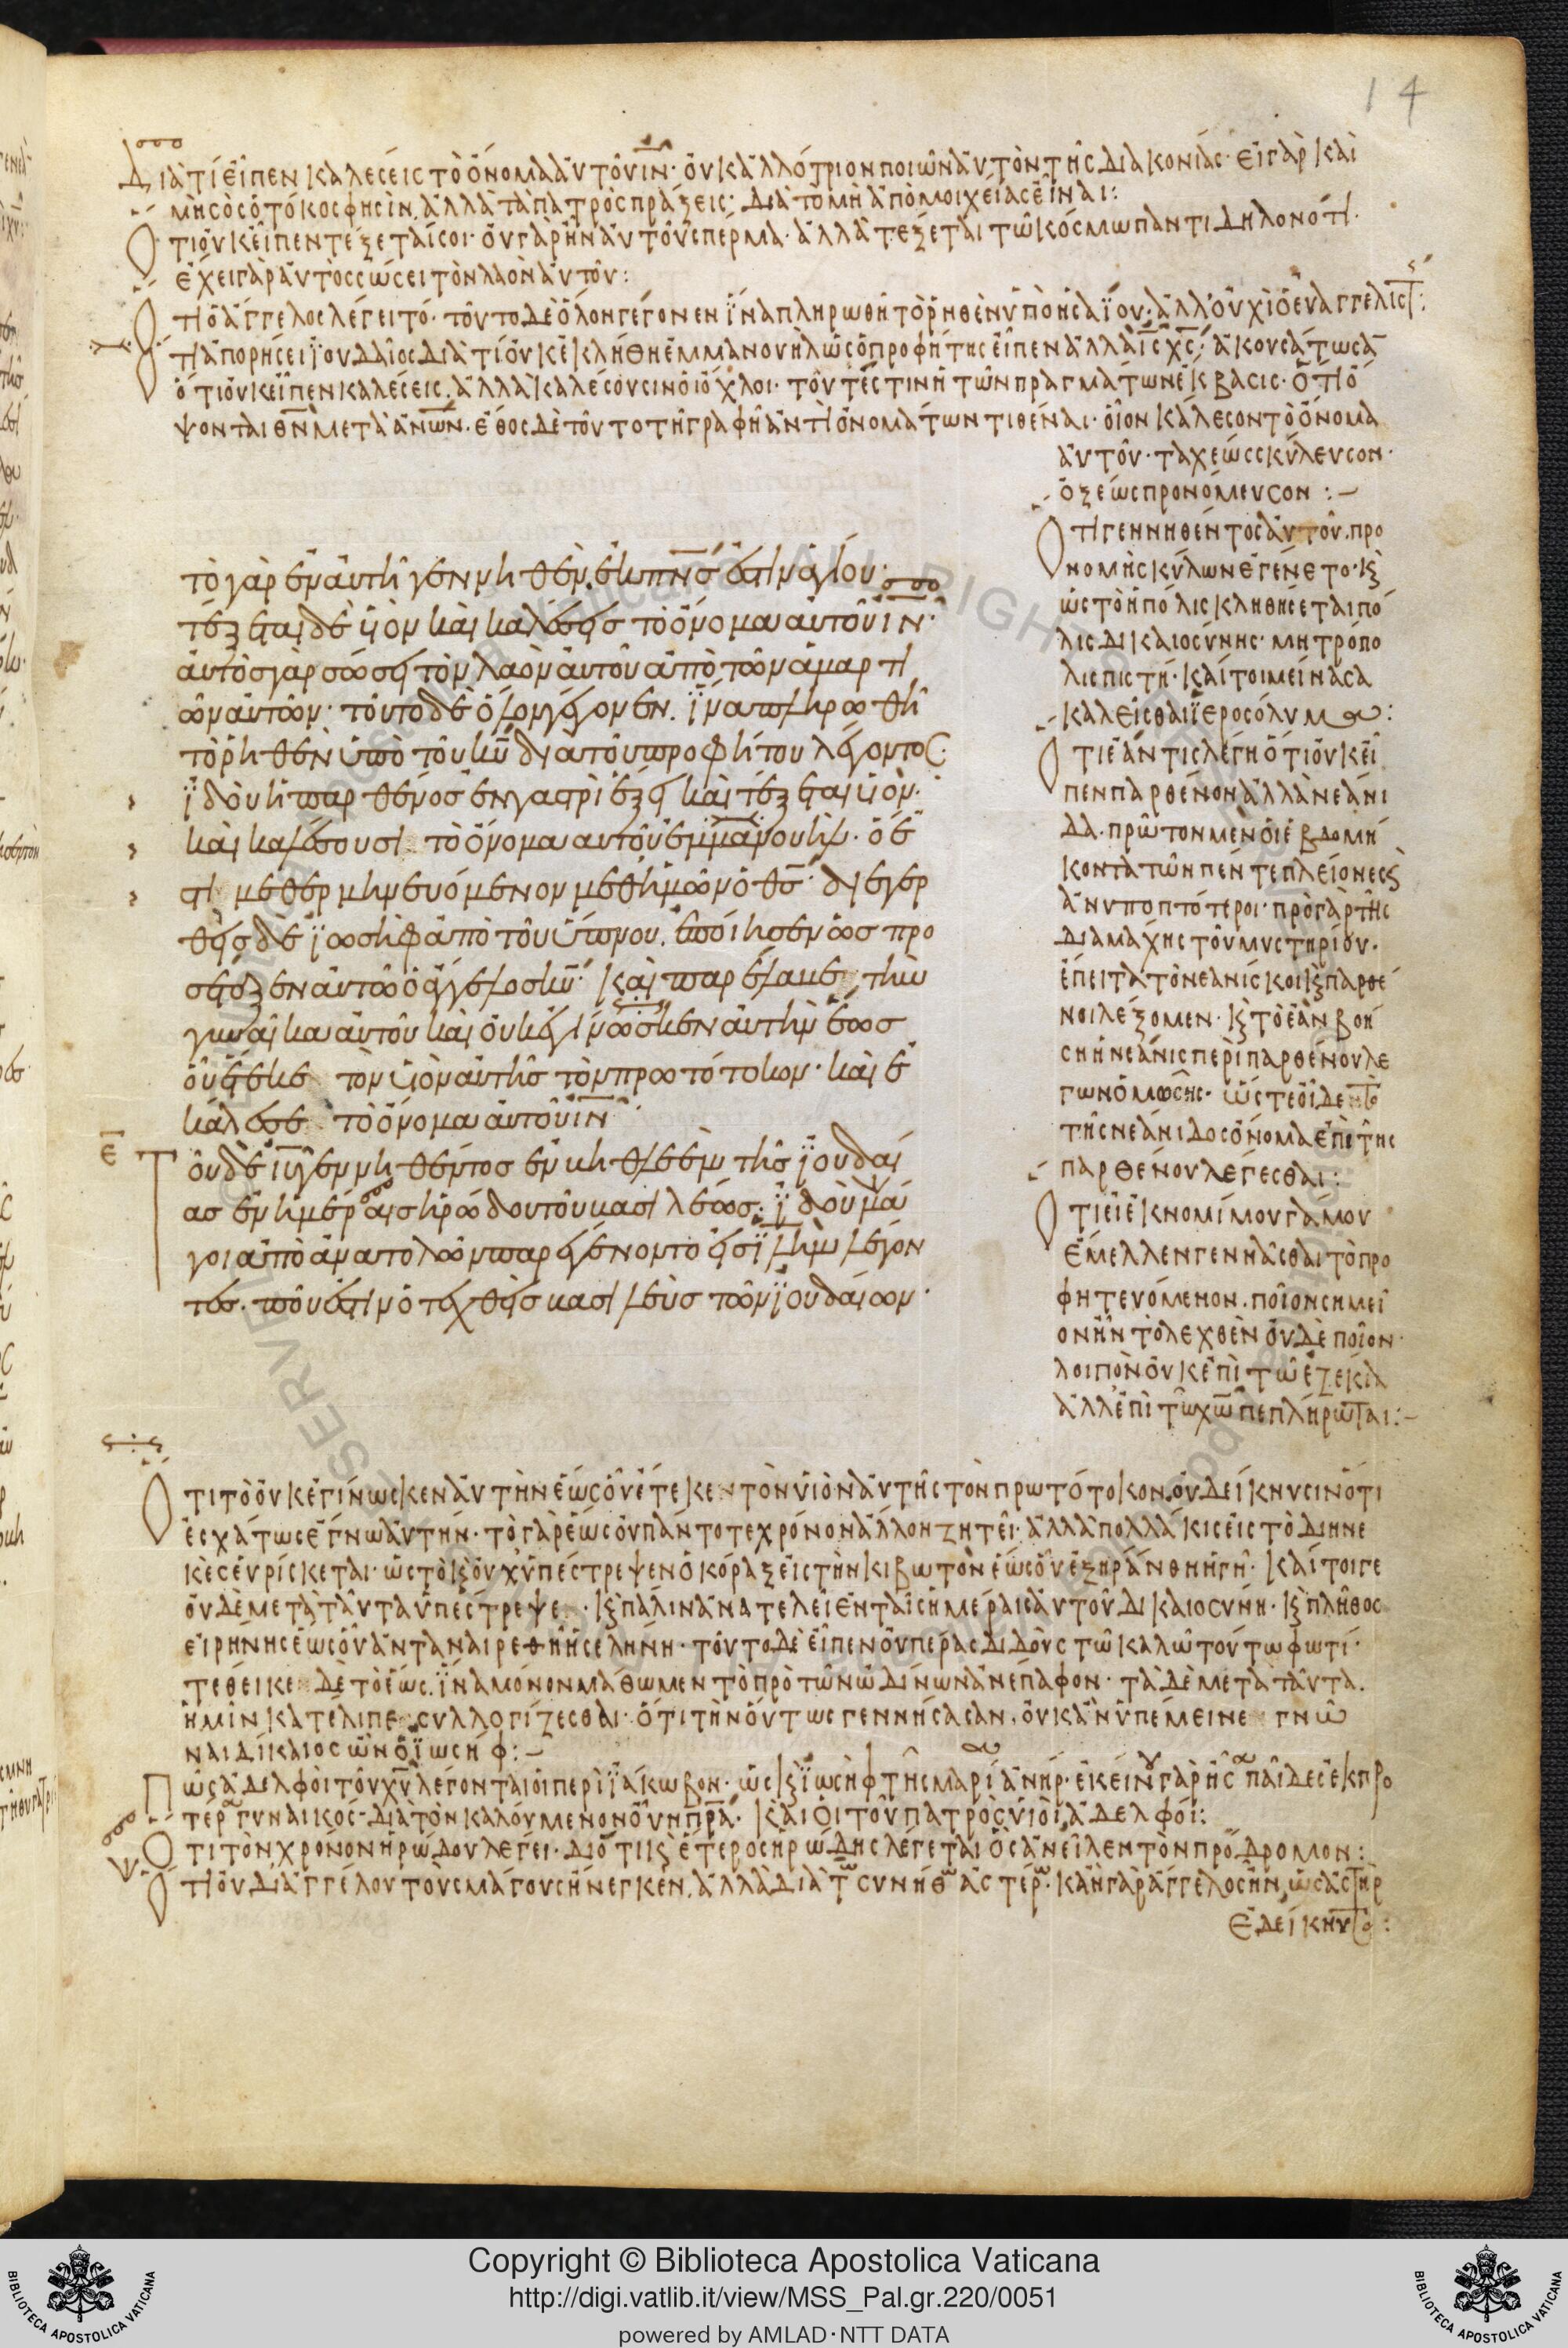 14
Διὰ τί εἶπεν καλέσεις τὸ ὄνομα αὐτοῦ ιν· οὐκ ἀλλότριον ποιῶν αὐτὸν τῆς διακονίας· εἰ γὰρ καὶ
μὴ σὸς ὁ τόκος φησὶν, ἀλλὰ τὰ πατρὸς πράξεις· διὰ τὸ μὴ ἀπὸ μοιχείας εἶναι:
Ὅτι οὐκ εἶπεν τέξεται σοι· οὐ γὰρ ἦν αὐτοῦ σπέρμα· ἀλλὰ τέξεται τῶ κόσμω παντὶ δηλονότι·
ἔχει γὰρ αὐτὸς σώσει τὸν λαὸν αὐτοῦ:
Ὅτι ὁ ἄγγελος λέγει τό· τοῦτο δὲ ὅλον γέγονεν ἵνα πληρωθῆ τὸ ῥηθὲν ὑπὸ ἡσαΐου· ἀλλ' οὐχὶ ὁ εὐαγγελιστ:
Ὅτι ἀπορήσει ϊουδαῖος διὰ τί οὐκ ἐκλήθη ἐμμανουὴλ ὡς ὁ προφήτης εἶπεν ἀλλὰ ις χς· ἀκουσάτωσα
ὅτι οὐκ εἶπεν καλέσεις, ἀλλὰ καλέσουσιν οἱ ὄχλοι· τουτέστιν ἡ τῶν πραγμάτων ἔκβασις· ὅτι ὄ
ψονται θν μετὰ ανων· ἔθος δὲ τοῦτο τῆ γραφῆ ἀντὶ ὀνομάτων τιθέναι· οἷον κάλεσον τὸ ὄνομα
αὐτοῦ· ταχέως σκύλευσον·
ὀξέως προνόμευσον :-
Ὅτι γεννηθέντος αὐτοῦ, προ
νομὴ σκύλων ἐγένετο· κ
ὡς τὸ ἡ πόλις κληθήσεται πό
λις δικαιοσύνης· μητρόπο
λις πιστή· καίτοι μείνασα
καλεῖσθαι ϊεροσόλυμα:
Ὅτι ἐάν τις λέγη ὅτι οὐκ εἶ
πεν παρθένον ἀλλὰ νεάνι
δα· πρῶτον μὲν οἱ ἑβδομή
κοντα τῶν πέντε πλείονες κ
ἀνυποπτότεροι· πρὸ γὰρ τῆς
διαμάχης τοῦ μυστηρίου·
ἔπειτα τὸ νεανίσκοι κ παρθέ
νοι λέξομεν· κ τὸ ἐὰν βοή
ση ἡ νεᾶνις περὶ παρθένου λέ
γων ὁ μωσῆς· ὥστε οἶδε το
τῆς νεάνιδος ὄνομα ἐπὶ τῆς
παρθένου λέγεσθαι:
Ὅτι εἰ ἐκ νομίμου γάμου
ἔμελλεν γενᾶσθαι τὸ προ
φητευόμενον, ποῖον σημεῖ
ον ἦν τὸ λεχθὲν οὐδὲ ποῖον·
λοιπὸν οὐκ ἐπὶ τῶ ἐζεκία
ἀλλ' ἐπὶ τῶ χω πεπλήρωται:-
τὸ γὰρ ἐν αὐτῆ γεννηθὲν, ἐκ πνς ἐστιν ἁγίου·
τέξεται δὲ υἱὸν καὶ καλέσεις τὸ ὄνομα αὐτοῦ ιν·
αὐτὸς γὰρ σώσει τὸν λαὸν αὐτοῦ ἀπὸ τῶν ἁμαρτι
ῶν αὐτῶν· τοῦτο δὲ ὅλον γέγονεν, ἵνα πληρωθῆ
τὸ ῥηθὲν ὑπὸ τοῦ κυ διὰ τοῦ προφήτου λέγοντος·
ϊδοὺ ἡ παρθένος ἐν γαστρὶ ἕξει καὶ τέξεται υἱὸν·
καὶ καλέσουσι τὸ ὄνομα αὐτοῦ ἐμμανουὴλ· ὅ ἐ
στι μεθερμηνευόμενον μεθ' ἡμῶν ὁ θς· διεγερ
θεὶς δὲ ϊωσὴφ ἀπὸ τοῦ ὕπνου, ἐποίησεν ὡς προ
σέταξεν αὐτῶ ὁ ἄγγελος κυ· καὶ παρέλαβε τὴν
γυναῖκα αὐτοῦ καὶ οὐκ ἐγίνωσκεν αὐτὴν ἕως
οὗ ἔτεκε τὸν υἱὸν αὐτῆς τὸν πρωτότοκον· καὶ ἐ
κάλεσε τὸ ὄνομα αὐτοῦ ιν·
ε Τοῦ δὲ ιυ γεννηθέντος ἐν βηθλεὲμ τῆς ϊουδαί
ας ἐν ἡμέραις ἡρώδου τοῦ βασιλέως· ϊδοὺ μά
γοι ἀπὸ ἀνατολῶν παρεγένοντο εἰς ϊλημ λέγον
τες· ποῦ ἐστιν ὁ τεχθεὶς βασιλεὺς τῶν ϊουδαίων·
Ὅτι τὸ οὐκ ἐγίνωσκεν αὐτὴν ἕως οὗ ἔτεκεν τὸν υἱὸν αὐτῆς τὸν πρωτότοκον, οὐ δείκνυσιν ὅτι
ἐσχάτως ἔγνω αὐτήν· τὸ γὰρ ἕως οὐ πάντοτε χρόνον ἄλλον ζητεῖ· ἀλλὰ πολλάκις εἰς τὸ διηνε
κὲς εὑρίσκεται· ὡς τὸ κ οὐχ ὑπέστρεψεν ὁ κόραξ εἰς τὴν κιβωτὸν ἕως οὗ ἐξηράνθη ἡ γῆ· καίτοιγε
οὐδὲ μετὰ ταῦτα ὑπέστρεψε· κ πάλιν ἀνατελεῖ ἐν ταῖς ἡμέραις αὐτοῦ δικαιοσύνη· κ πλῆθος
εἰρήνης ἕως οὗ ἀνταναιρεθῆ ἡ σελήνη· τοῦτο δὲ εἶπεν οὐ πέρας διδοὺς τῶ καλῶ τούτω φωτί·
τέθεικε δὲ τὸ ἕως, ἵνα μόνον μάθωμεν τὸ πρὸ τῶν ὠδίνων ἀνέπαφον· τὰ δὲ μετὰ ταῦτα,
ἡμῖν κατέλιπε συλλογίζεσθαι· ὅτι τὴν οὕτως γεννήσασαν, οὐκ ἂν ὑπέμεινε γνῶ
ναι δίκαιος ὢν ὁ ϊωσήφ:-
Πῶς ἀδελφοὶ τοῦ χυ λέγονται οἱ περὶ ϊάκωβον· ὡς κ ϊωσὴφ τῆς μαρί ἀνήρ· ἐκείνου γὰρ ἦς παῖδες ἐκ προ
τερ γυναικός· διὰ τὸν καλούμενον οὖν πρα· καὶ οἱ τοῦ πατρὸς υἱοὶ, ἀδελφοί:
Ὅτι τὸν χρόνον ἡρώδου λέγει· διότι κ ἕτερος ἡρώδης λέγεται ὃς ἀνεῖλεν τὸν πρόδρομον:
Ὅτι οὐ δι' ἀγγέλου τοὺς μάγους ἤνεγκεν, ἀλλὰ διὰ τ συνήθ ἀστέρ· κἂν γὰρ ἄγγελος ἦν, ὡς ἀστὴρ
ἐδείκνυτο:
Copyright © Biblioteca Apostolica Vaticana
http://digi.vatlib.it/view/MSS_Pal.gr.220/0051
powered by AMLAD·NTT DATA
BIBLIOTECA APOSTOLICA VATICANA
BIBLIOTECA APOSTOLICA VATICANA